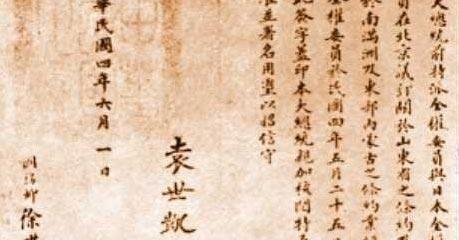 大總統前特派全權委員與日本全
員在北京議訂關於山東省之條約
於南滿洲及東部內蒙古之條約業
全權委員於民國四年五月二十五
此簽字蓋印本大總統親加校閱特
准並署名用璽以昭信守
袁世凱
華民國四年六月一日
國務卿徐